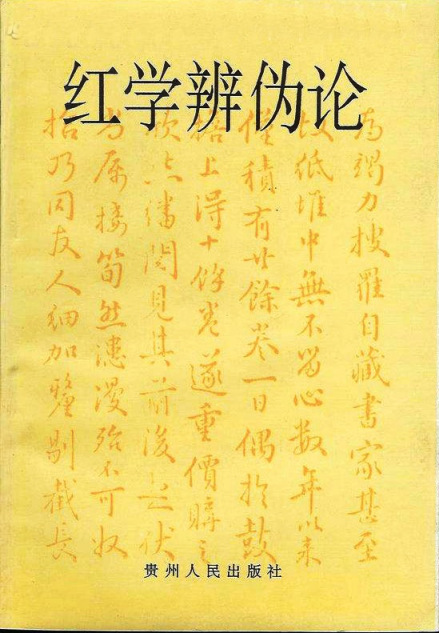 红学辨伪论
為竭力搜羅自藏書家甚至
故紙堆中無不留心數年以来
僅積有廿餘卷一日偶於鼓
擔上得十餘卷遂重價購之
欣然繙閱見其前後起伏
尚属接筍然漶漫殆不可收
拾乃同友人細加釐剔截長
贵州人民出版社